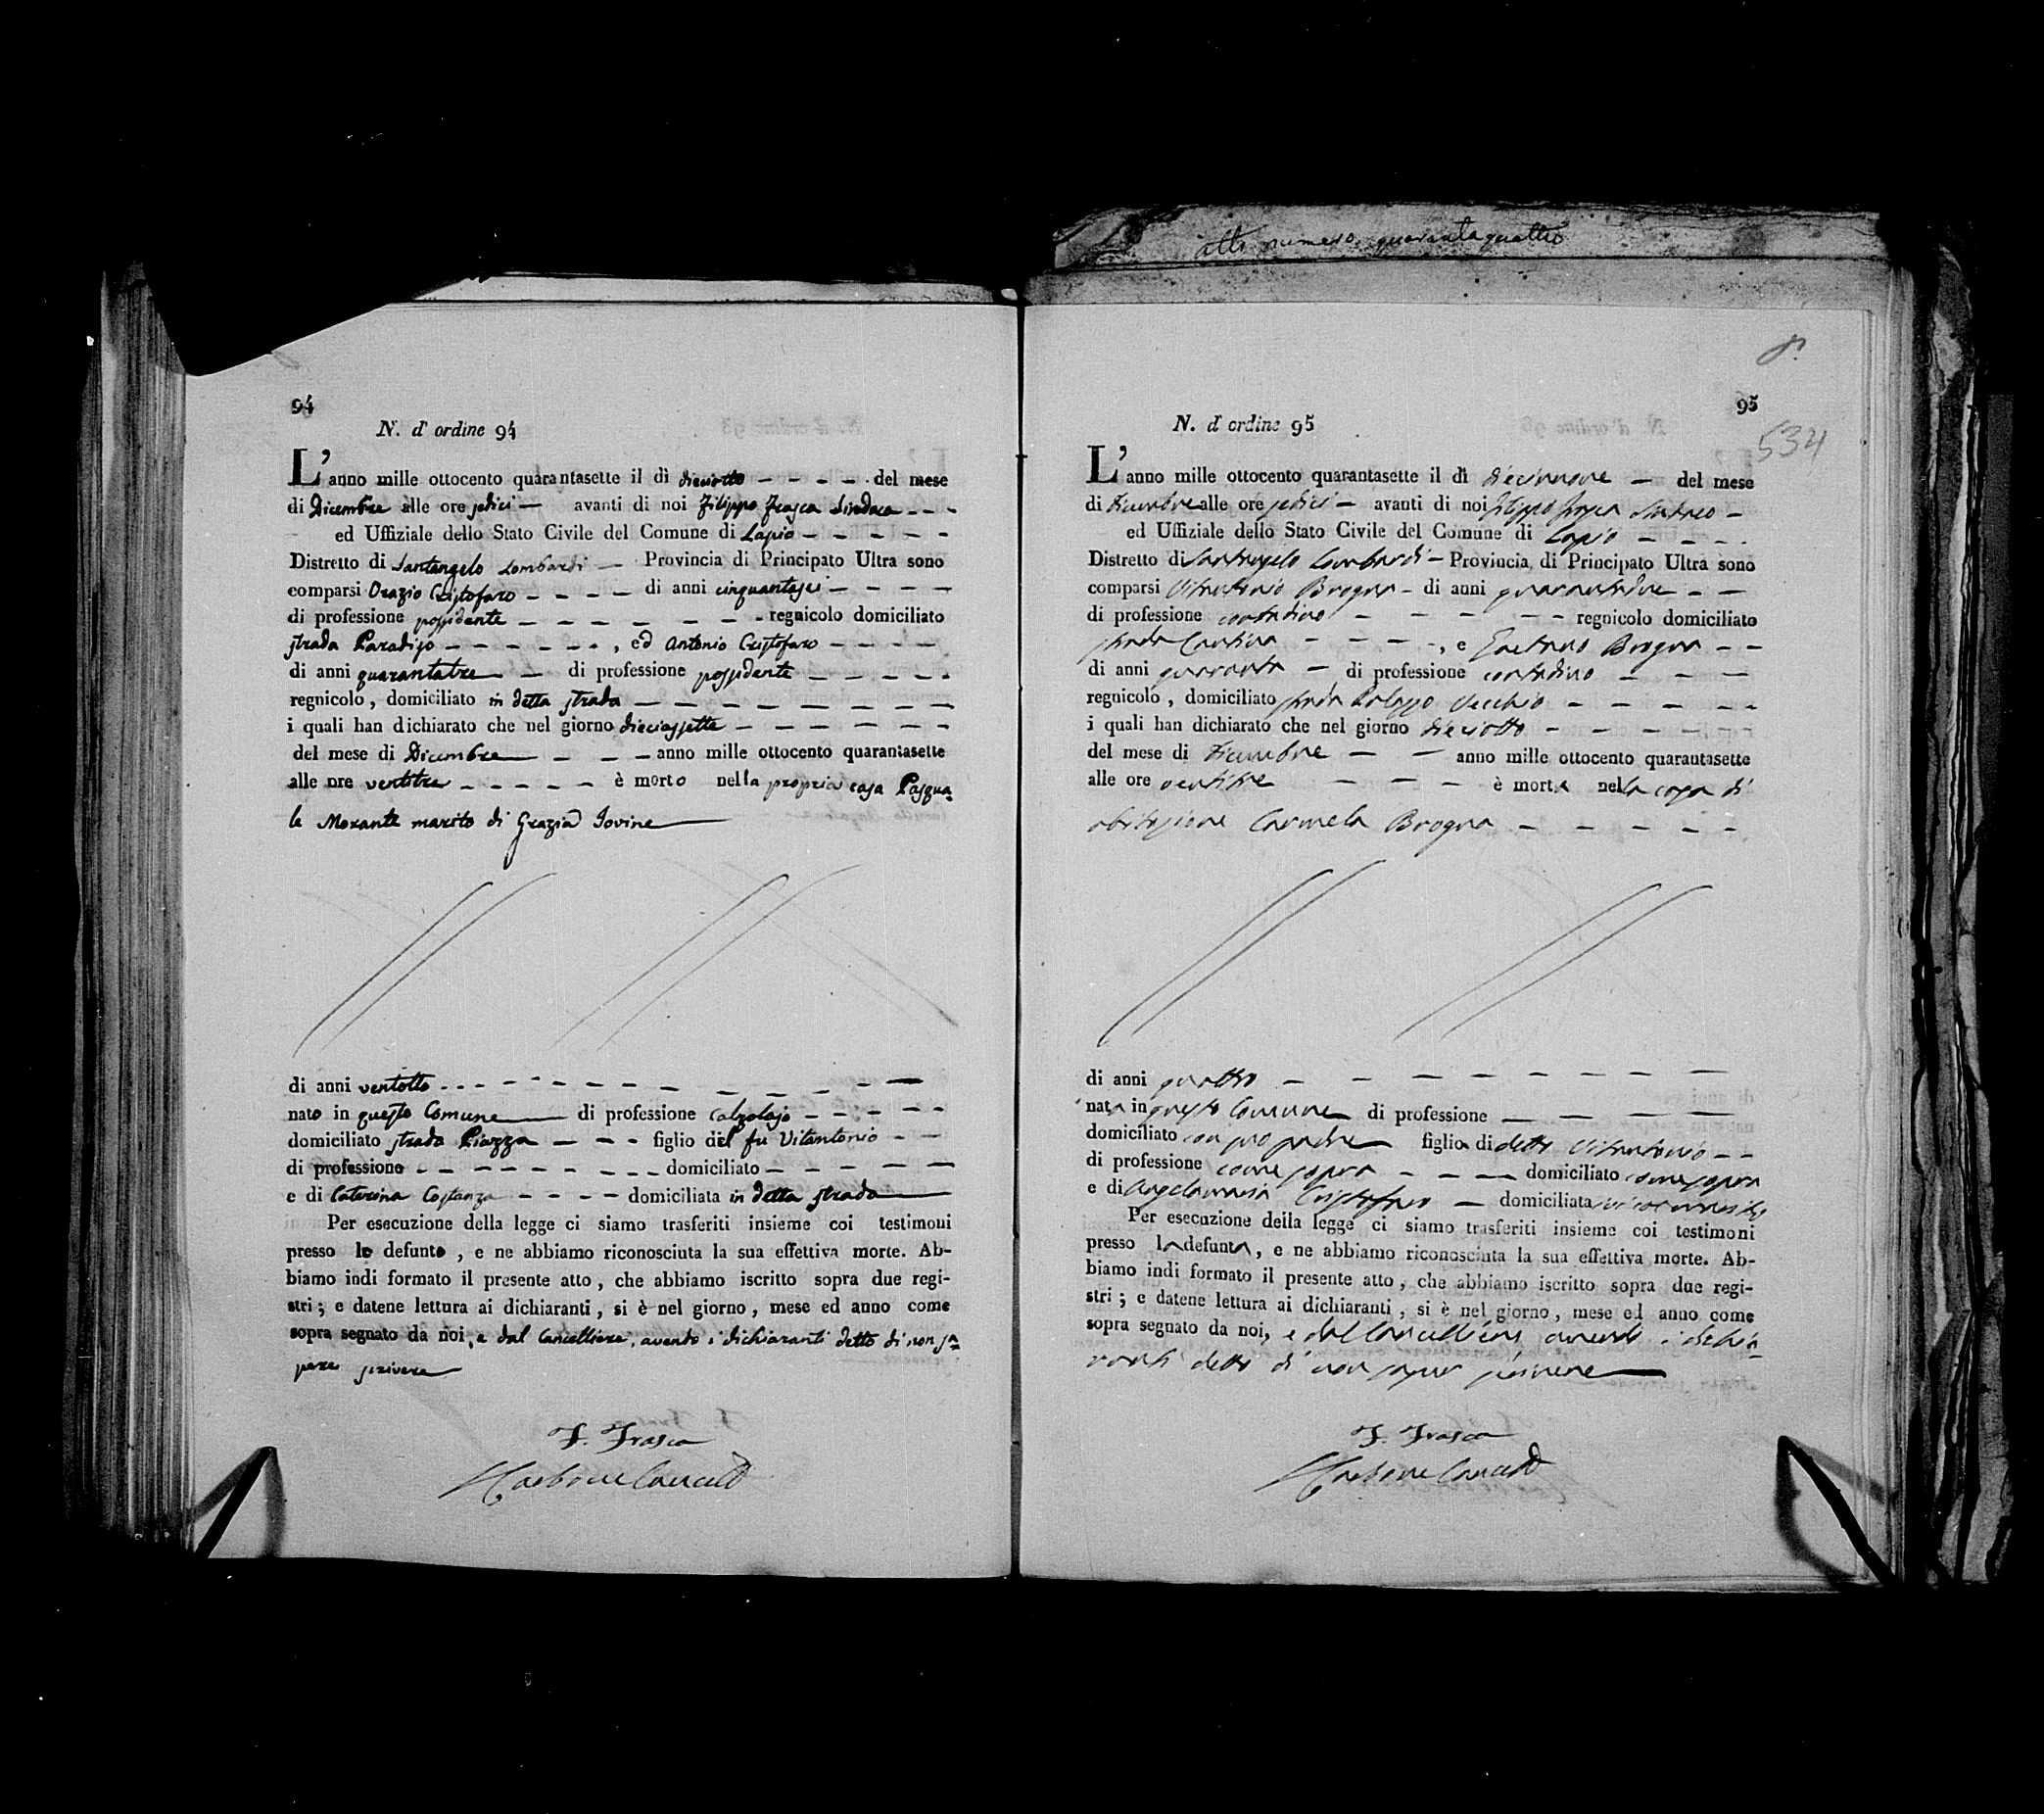 atto numero quarantaquattro
94
N. d' ordine 94
L'anno mille ottocento quarantasette il dì dieciotto del mese
di Dicembre alle ore sedici avanti di noi Filippo Frasca Sindaco
ed Uffiziale dello Stato Civile del Comune di Lapio
Distretto di Santangelo Lombardi Provincia di Principato Ultra sono
comparsi Orazio Cristofaro di anni cinquantasei
di professione possidente regnicolo domiciliato
strada Paradiso , ed Antonio Cristofaro
di anni quarantatre di professione possidente
regnicolo, domiciliato in detta strada
i quali han dichiarato che nel giorno dieciassette
del mese di Dicembre anno mille ottocento quarantasette
alle ore ventitre è morto nella propria casa Pasqua-
le Morante marito di Grazia Iovine
di anni ventotto
nato in questo Comune di professione calzolajo
domiciliato strada Piazza figlio del fu Vitantonio
di professione domiciliato
e di Caterina Costanza domiciliata in detta strada
Per esecuzione della legge ci siamo trasferiti insieme coi testimoni
presso lo defunto, e ne abbiamo riconosciuta la sua effettiva morte. Ab-
biamo indi formato il presente atto, che abbiamo iscritto sopra due regi-
stri; e datene lettura ai dichiaranti, si è nel giorno, mese ed anno come
sopra segnato da noi, e dal Cancelliere, avendo i dichiaranti detto di non sa-
pere scrivere
F. Frasca
95
534
N. d' ordine 95
L'anno mille ottocento quarantasette il dì diecinnove del mese
di Dicembre alle ore sedici avanti di noi Filippo Frasca Sindaco
ed Uffiziale dello Stato Civile del Comune di Lapio
Distretto di Santangelo Lombardi Provincia di Principato Ultra sono
comparsi Vitantonio Brogna di anni quarantadue
di professione contadino regnicolo domiciliato
strada Cantina , e Gaetano Brogna
di anni quaranta di professione contadino
regnicolo, domiciliato strada Palazzo Vecchio
i quali han dichiarato che nel giorno dieciotto
del mese di Dicembre anno mille ottocento quarantasette
alle ore ventitre è morta nella casa di
abitazione Carmela Brogna
di anni quattro
nata in questo Comune di professione
domiciliato con suo padre figlia di detto Vitantonio
di professione come sopra domiciliato come sopra
e di Angelamaria Cristofaro domiciliata
Per esecuzione della legge ci siamo trasferiti insieme coi testimoni
presso la defunta, e ne abbiamo riconosciuta la sua effettiva morte. Ab-
biamo indi formato il presente atto, che abbiamo iscritto sopra due regi-
stri; e datene lettura ai dichiaranti, si è nel giorno, mese ed anno come
sopra segnato da noi, e dal Cancelliere avendo i dichia-
ranti detto di non saper scrivere
F. Frasca